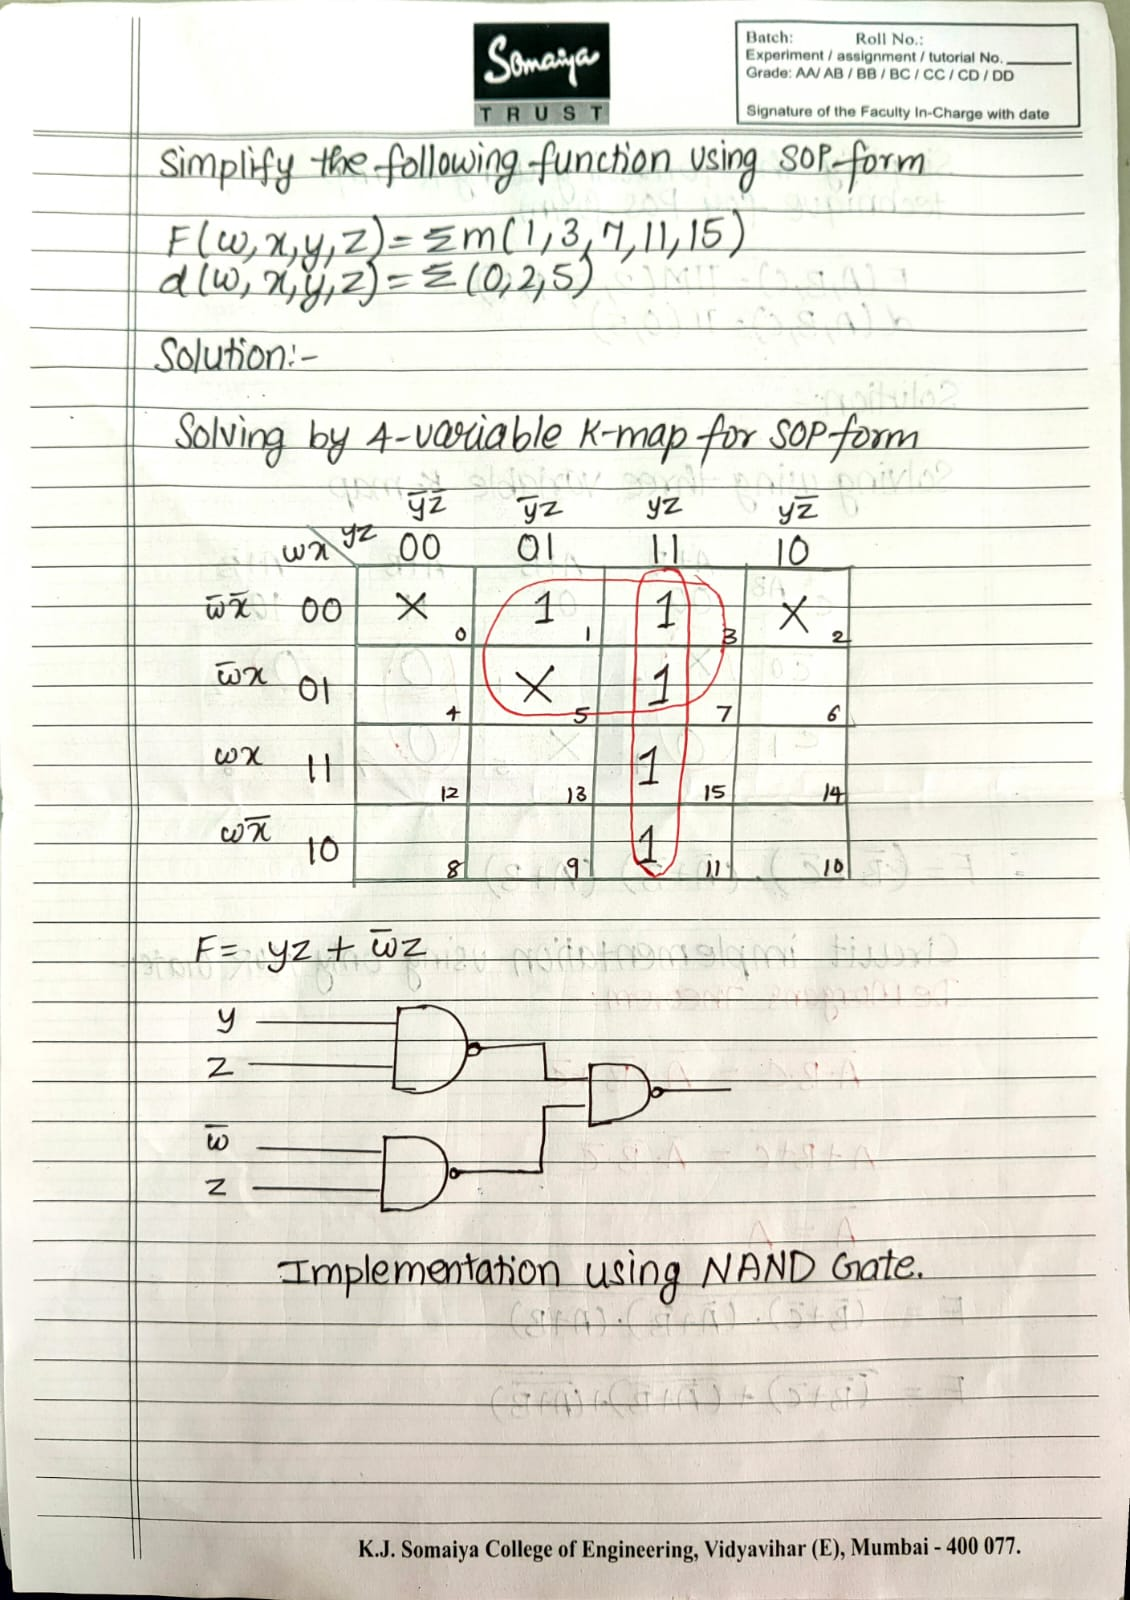 Somaiya
TRUST
Batch: Roll No.:
Experiment / assignment / tutorial No.
Grade: AA/ AB / BB / BC / CC / CD / DD
Signature of the Faculty In-Charge with date
Simplify the following function using SOP form
F(w,x,y,z)=Σm(1,3,7,11,15)
d(w,x,y,z)=Σ(0,2,5)
Solution:-
Solving by 4-variable K-map for SOP form
y̅z̅ y̅z yz yz̅
wx yz 00 01 11 10
w̅x̅ 00 X 0 1 1 1 3 X 2
w̅x 01 4 X 5 1 7 6
wx 11 12 13 1 15 14
wx̅ 10 8 9 1 11 10
F= yz + w̅z
y
z
w̅
z
Implementation using NAND Gate.
K.J. Somaiya College of Engineering, Vidyavihar (E), Mumbai - 400 077.